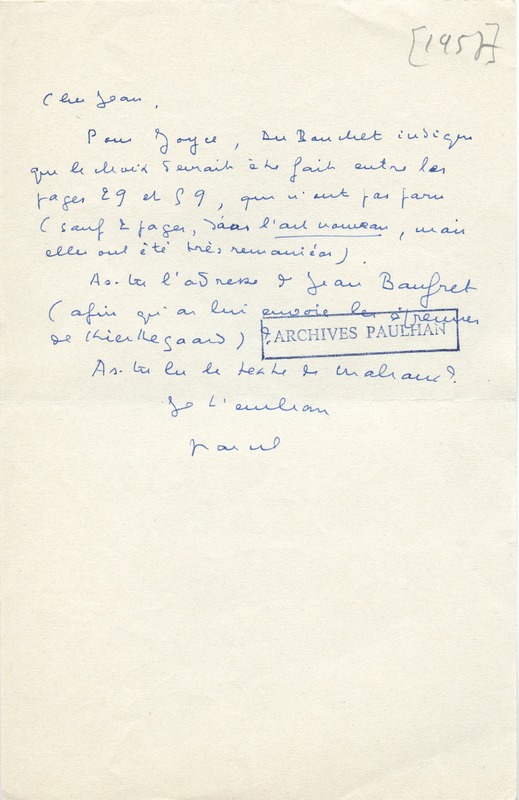 [1957]
Cher Jean,
Pour Joyce, Du Bouchet indique
que le choix devrait être fait entre les
pages 29 et 59, qui n'ont pas paru
(sauf 2 pages, dans l'art nouveau, mais
elles ont été très remaniées).
As-tu l'adresse de Jean Beaufret
(afin qu'on lui envoie les épreuves
de Kierkegaard)?
ARCHIVES PAULHAN
As-tu lu le texte de Malraux?
Je t'embrasse
Marcel